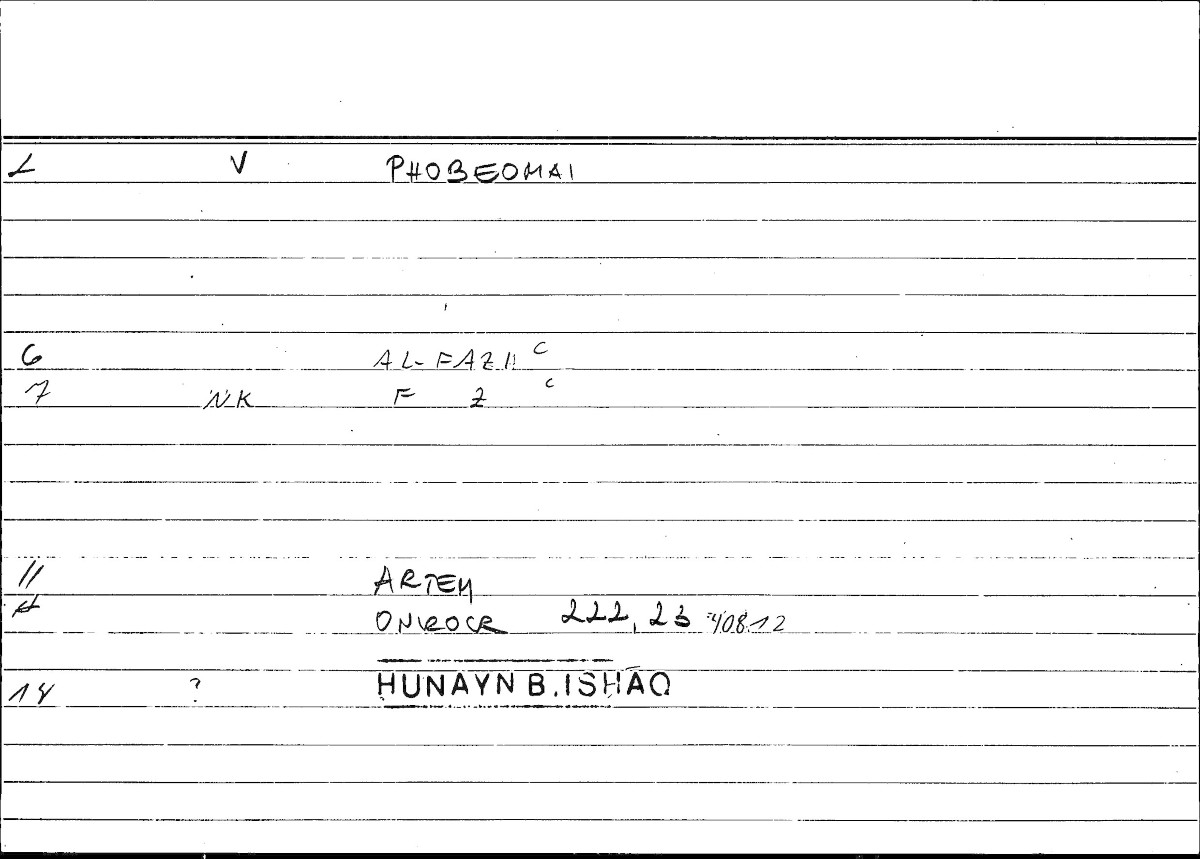 2 V PHOBEOMAI
6 AL-FAZIʿ
7 NK F Z C
11 ARTEM
ONIROCR 222, 23 = 408.12
14 ? ḤUNAYN B. ISḤĀQ